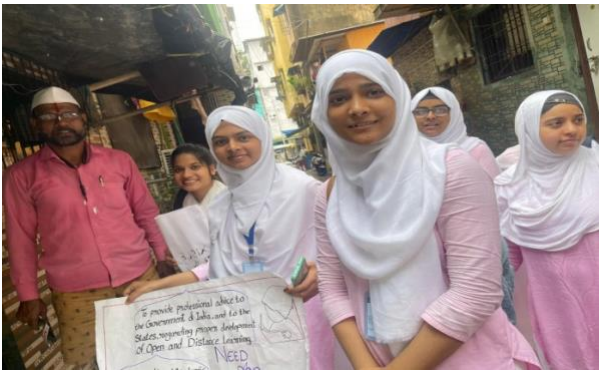 To provide professional advice to
the Government of India, and to the
States, regarding proper development
of Open and Distance Learning.
NEED